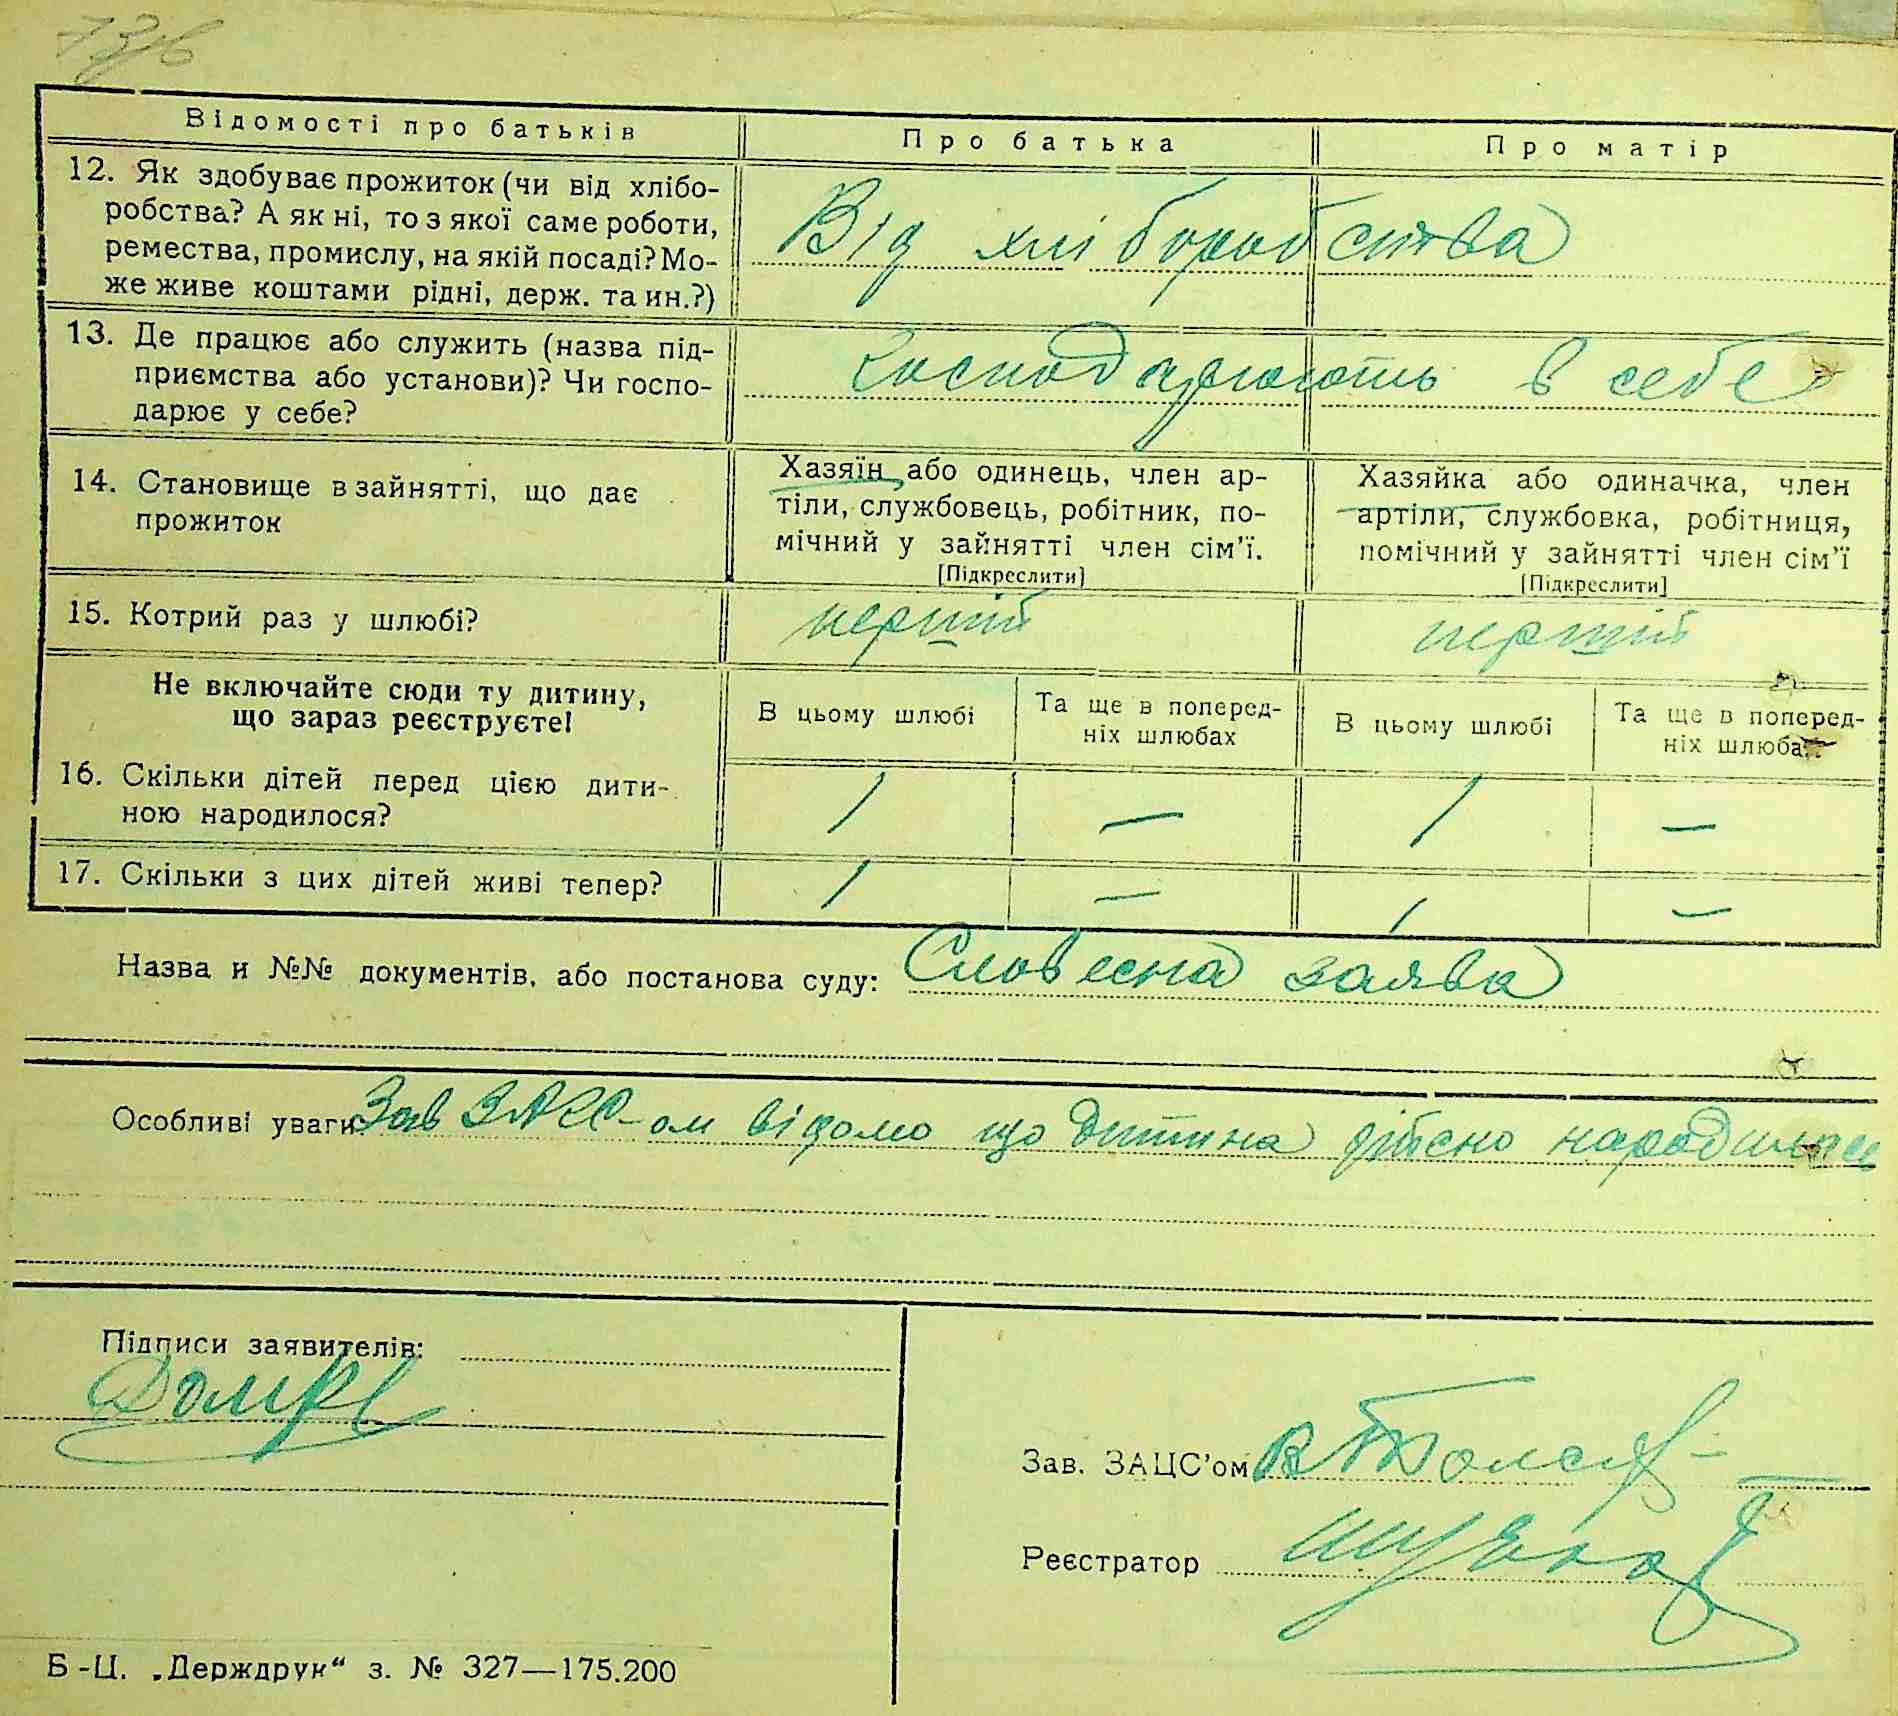 Відомості про батьків Про батька Про матір
12. Як здобуває прожиток (чи від хлібо-
робства? А як ні, то з якої саме роботи,
ремества, промислу, на якій посаді? Мо-
же живе коштами рідні, держ. та ин.?)
Від хліборобства
13. Де працює або служить (назва під-
приємства або установи)? Чи госпо-
дарює у себе?
Господарюють в себе
14. Становище в зайнятті, що дає
прожиток
Хазяїн або одинець, член ар-
тіли, службовець, робітник, по-
мічний у зайнятті член сім’ї.
[Підкреслити]
Хазяйка або одиначка, член
артіли, службовка, робітниця,
помічний у зайнятті член сім’ї
[Підкреслити]
15. Котрий раз у шлюбі? перший перший
Не включайте сюди ту дитину,
що зараз реєструєте!
В цьому шлюбі
Та ще в поперед-
ніх шлюбах
В цьому шлюбі
Та ще в поперед-
ніх шлюбах
16. Скільки дітей перед цією дити-
ною народилося?
1 — 1 —
17. Скільки з цих дітей живі тепер? 1 — 1 —
Назва и №№ документів, або постанова суду: Словесна заява
Особливі уваги: Зав ЗАЦС-ом відомо що дитина дійсно народилась
Підписи заявителів:
Зав. ЗАЦС’ом
Реєстратор
Б-Ц. „Держдрук“ з. № 327—175.200